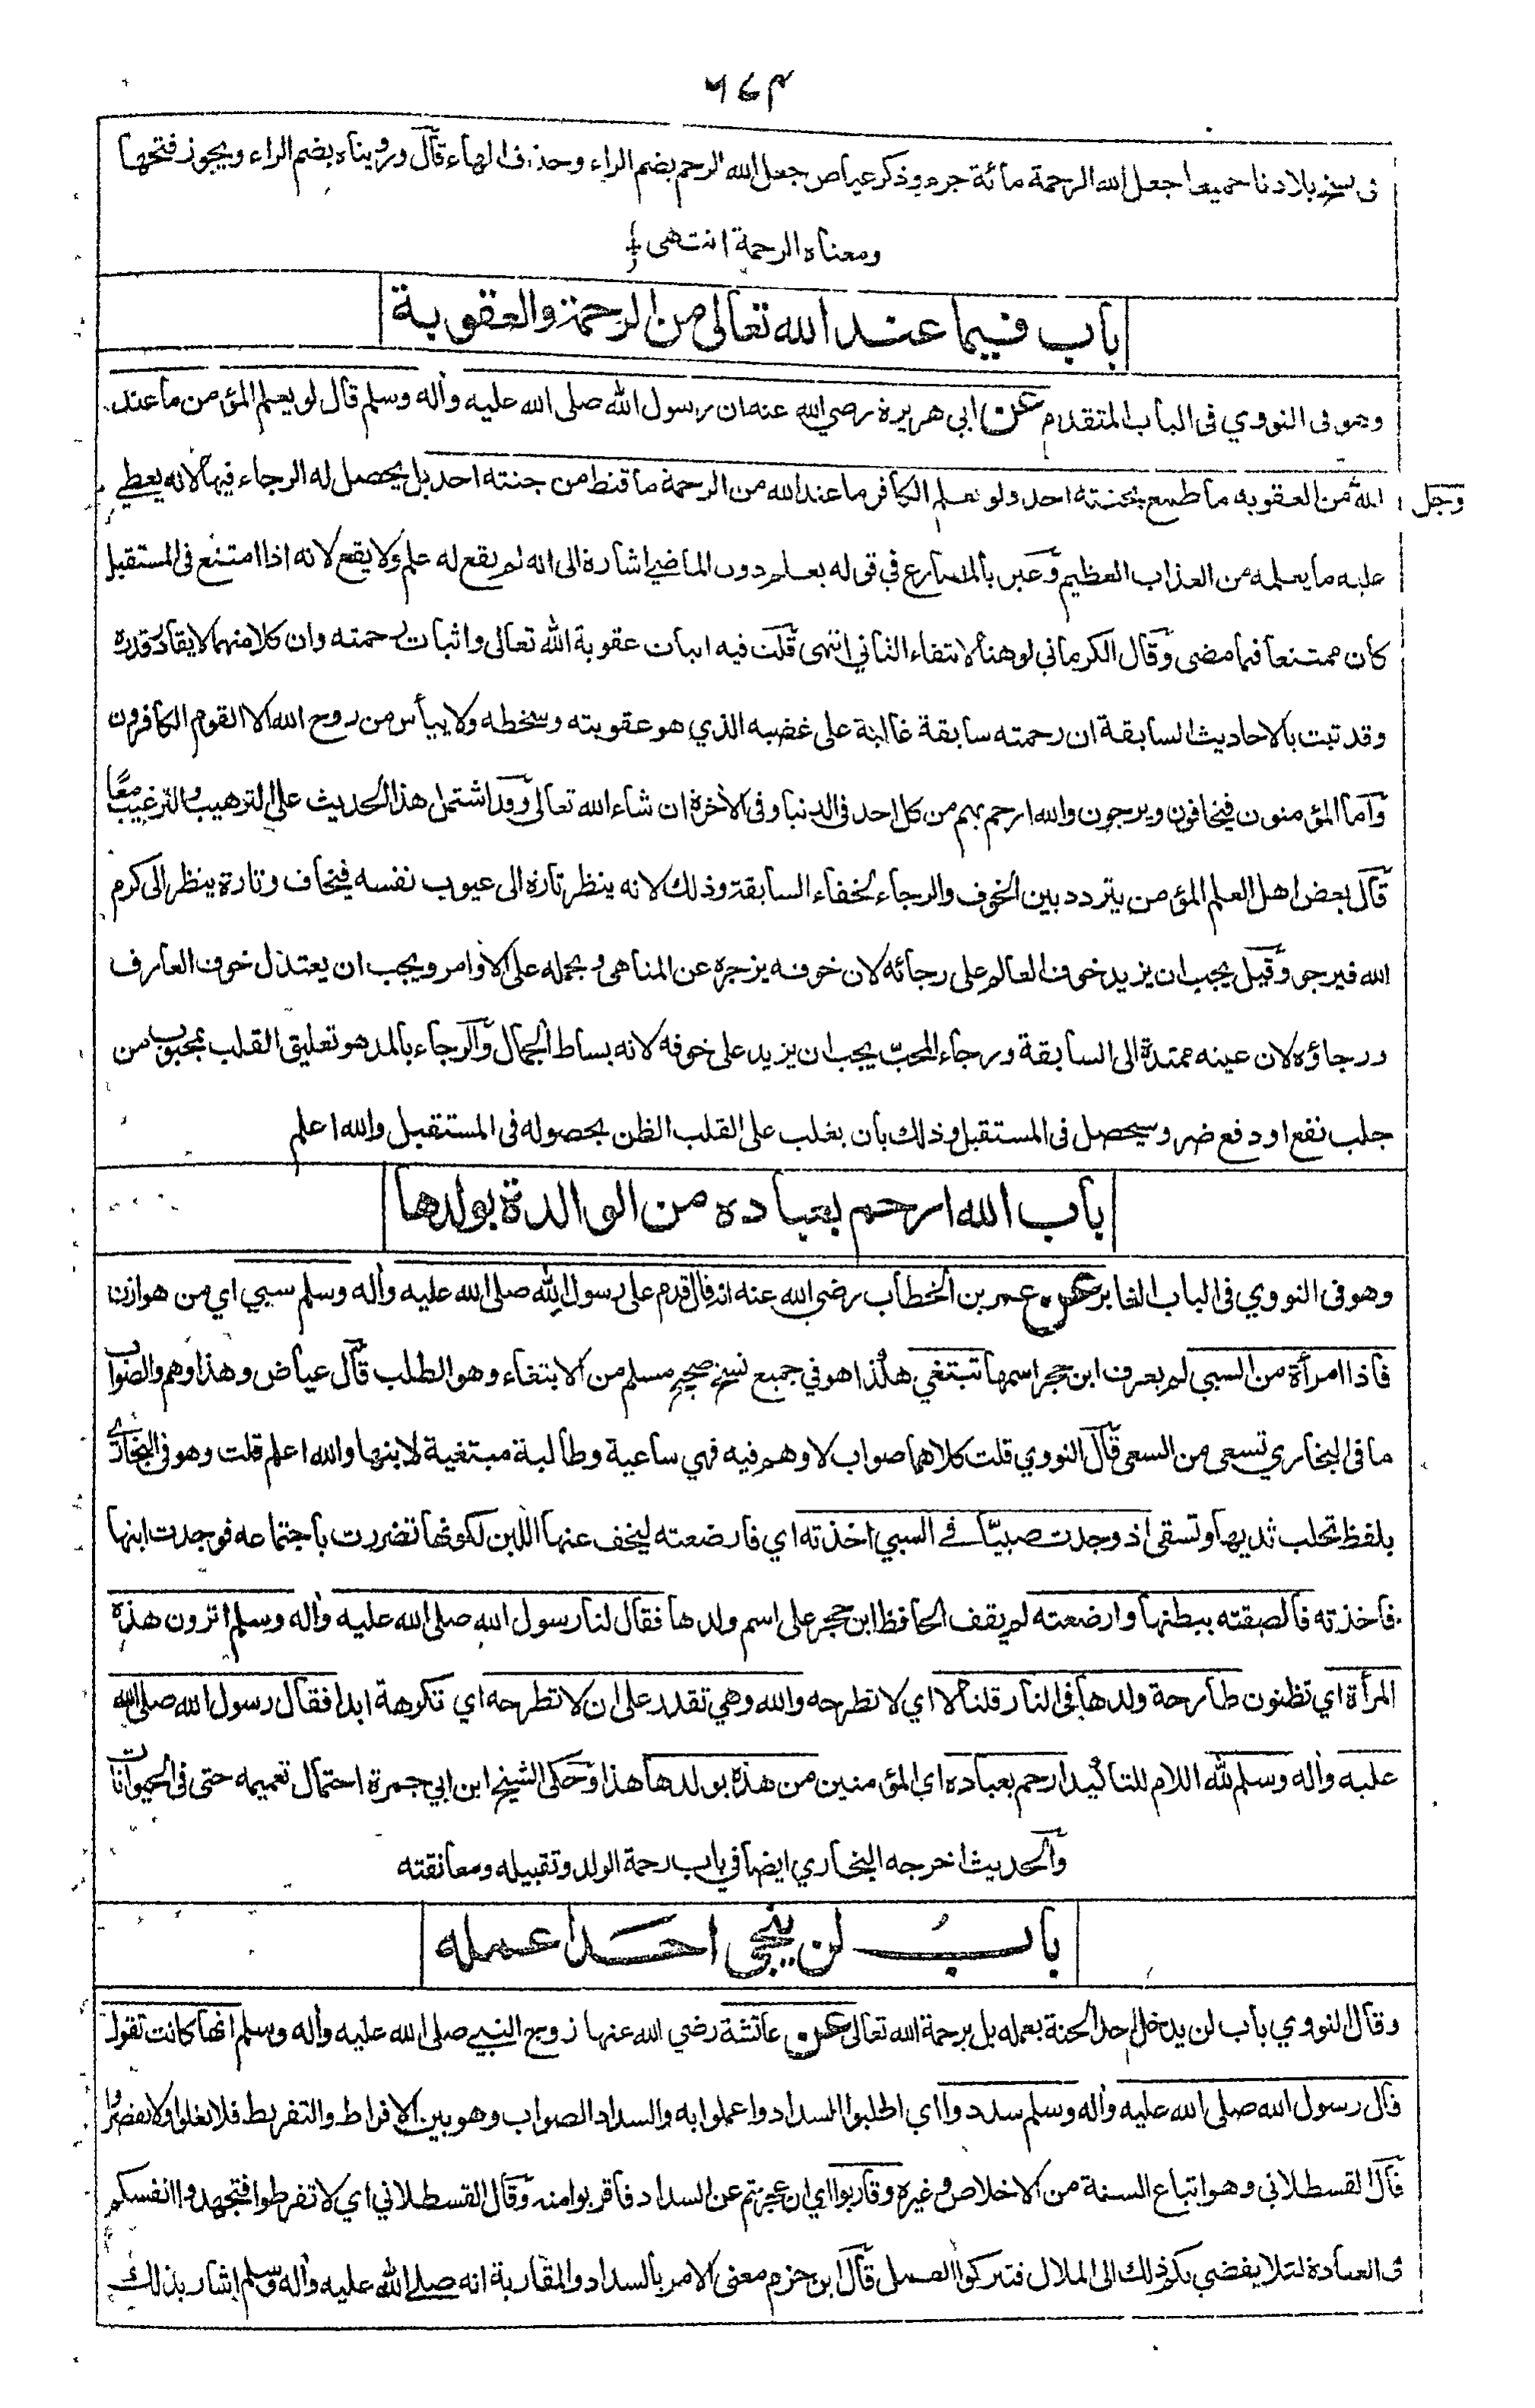 ٦٤٣
فى نسخ بلادنا جميعا جعل الله الرحمة مائة جزء وذكر عياض جعل الله الرحم بضم الراء وحذف الهاء قال ورويناه بضم الراء ويجوز فتحها
ومعناه الرحمة انتهى
باب فيما عند الله تعالى من الرحمة والعقوبة
وهو فى النووي فى الباب المتقدم عن ابي هريرة رضي الله عنه ان رسول الله صلى الله عليه وأله وسلم قال لو يعلم المؤمن ما عند
الله عز وجل من العقوبة ما طمع بجنته احد ولو يعلم الكافر ما عند الله من الرحمة ما قنط من جنته احد بل يحصل له الرجاء فيها لانه يعطي
عليه ما يعلمه من العذاب العظيم وعبر بالمضارع في قوله يعلم دون الماضي اشارة الى انه لم يقع له علم ولا يقع لانه اذا امتنع فى المستقبل
كان ممتنعا فيما مضى وقال الكرماني لو هنا لانتفاء الثاني انتهى قلت فيه اثبات عقوبة الله تعالى واثبات رحمته وان كلا منهما لا يقادر قدره
وقد ثبت بالاحاديث السابقة ان رحمته سابقة غالبة على غضبه الذي هو عقوبته وسخطه ولا ييأس من روح الله الا القوم الكافرون
وأما المؤمنون فيخافون ويرجون والله ارحم بهم من كل احد فى الدنيا وفى الأخرة ان شاء الله تعالى وقد اشتمل هذا الحديث على الترهيب والترغيب معًا
قال بعض اهل العلم المؤمن يتردد بين الخوف والرجاء لخفاء السابقة وذلك لانه ينظر تارة الى عيوب نفسه فيخاف وتارة ينظر الى كرم
الله فيرجو وقيل يجب ان يزيد خوف العالم على رجائه لان خوفه يزجره عن المناهى ويحمله على الأوامر ويجب ان يعتدل خوف العارف
ورجاؤه لان عينه ممتدة الى السابقة ورجاء المحبّ يجب ان يزيد على خوفه لانه بساط الجمال والرجاء بالمد هو تعليق القلب بمحبوب من
جلب نفع او دفع ضر وسيحصل فى المستقبل وذلك بأن يغلب على القلب الظن بحصوله فى المستقبل والله اعلم
باب الله ارحم بعباده من الوالدة بولدها
وهو فى النووي فى الباب الغابر عن عمر بن الخطاب رضي الله عنه انه قال قدم على رسول الله صلى الله عليه وأله وسلم سبي اي من هوازن
فاذا امرأة من السبي لم يعرف ابن حجر اسمها تبتغي هكذا هو في جميع نسخ صحيح مسلم من الابتغاء وهو الطلب قال عياض وهذا وهم والصواب
ما فى البخاري تسعى من السعى قال النووي قلت كلاهما صواب لا وهم فيه فهي ساعية وطالبة مبتغية لابنها والله اعلم قلت وهو فى البخاري
بلفظ تحلب ثديها وتسقى اذ وجدت صبيّا في السبي اخذته اي فارضعته ليخف عنها اللبن لكونها تضررت باجتماعه فوجدت ابنها
فاخذته فالصقته ببطنها وارضعته لم يقف الحافظ ابن حجر على اسم ولدها فقال لنا رسول الله صلى الله عليه وأله وسلم اترون هذه
المرأة اي تظنون طارحة ولدها فى النار قلنا لا اي لا تطرحه والله وهي تقدر على ان لا تطرحه اي تكرهه ابدا فقال رسول الله صلى الله
عليه وأله وسلم لله اللام للتأكيد ارحم بعباده اي المؤمنين من هذه بولدها هذا وحكى الشيخ ابن ابي جمرة احتمال تعميمه حتى فى الحيوانات
والحديث اخرجه البخاري ايضا في باب رحمة الولد وتقبيله ومعانقته
بابُ لن ينجي احدا عمله
وقال النووي باب لن يدخل احد الجنة بعمله بل برحمة الله تعالى عن عائشة رضي الله عنها زوج النبي صلى الله عليه وأله وسلم انها كانت تقول
قال رسول الله صلى الله عليه وأله وسلم سددوا اي اطلبوا السداد واعملوا به والسداد الصواب وهو بين الافراط والتفريط فلا تغلوا ولا تقصروا
قال القسطلاني وهو اتباع السنة من الاخلاص وغيره وقاربوا اي ان عجزتم عن السداد فاقربوا منه وقال القسطلاني اي لا تفرطوا فتجهدوا انفسكم
فى العبادة لئلا يفضي بكم ذلك الى الملال فتتركوا العمل قال ابن حزم معنى الامر بالسداد والمقاربة انه صلى الله عليه وأله وسلم اشار بذلك